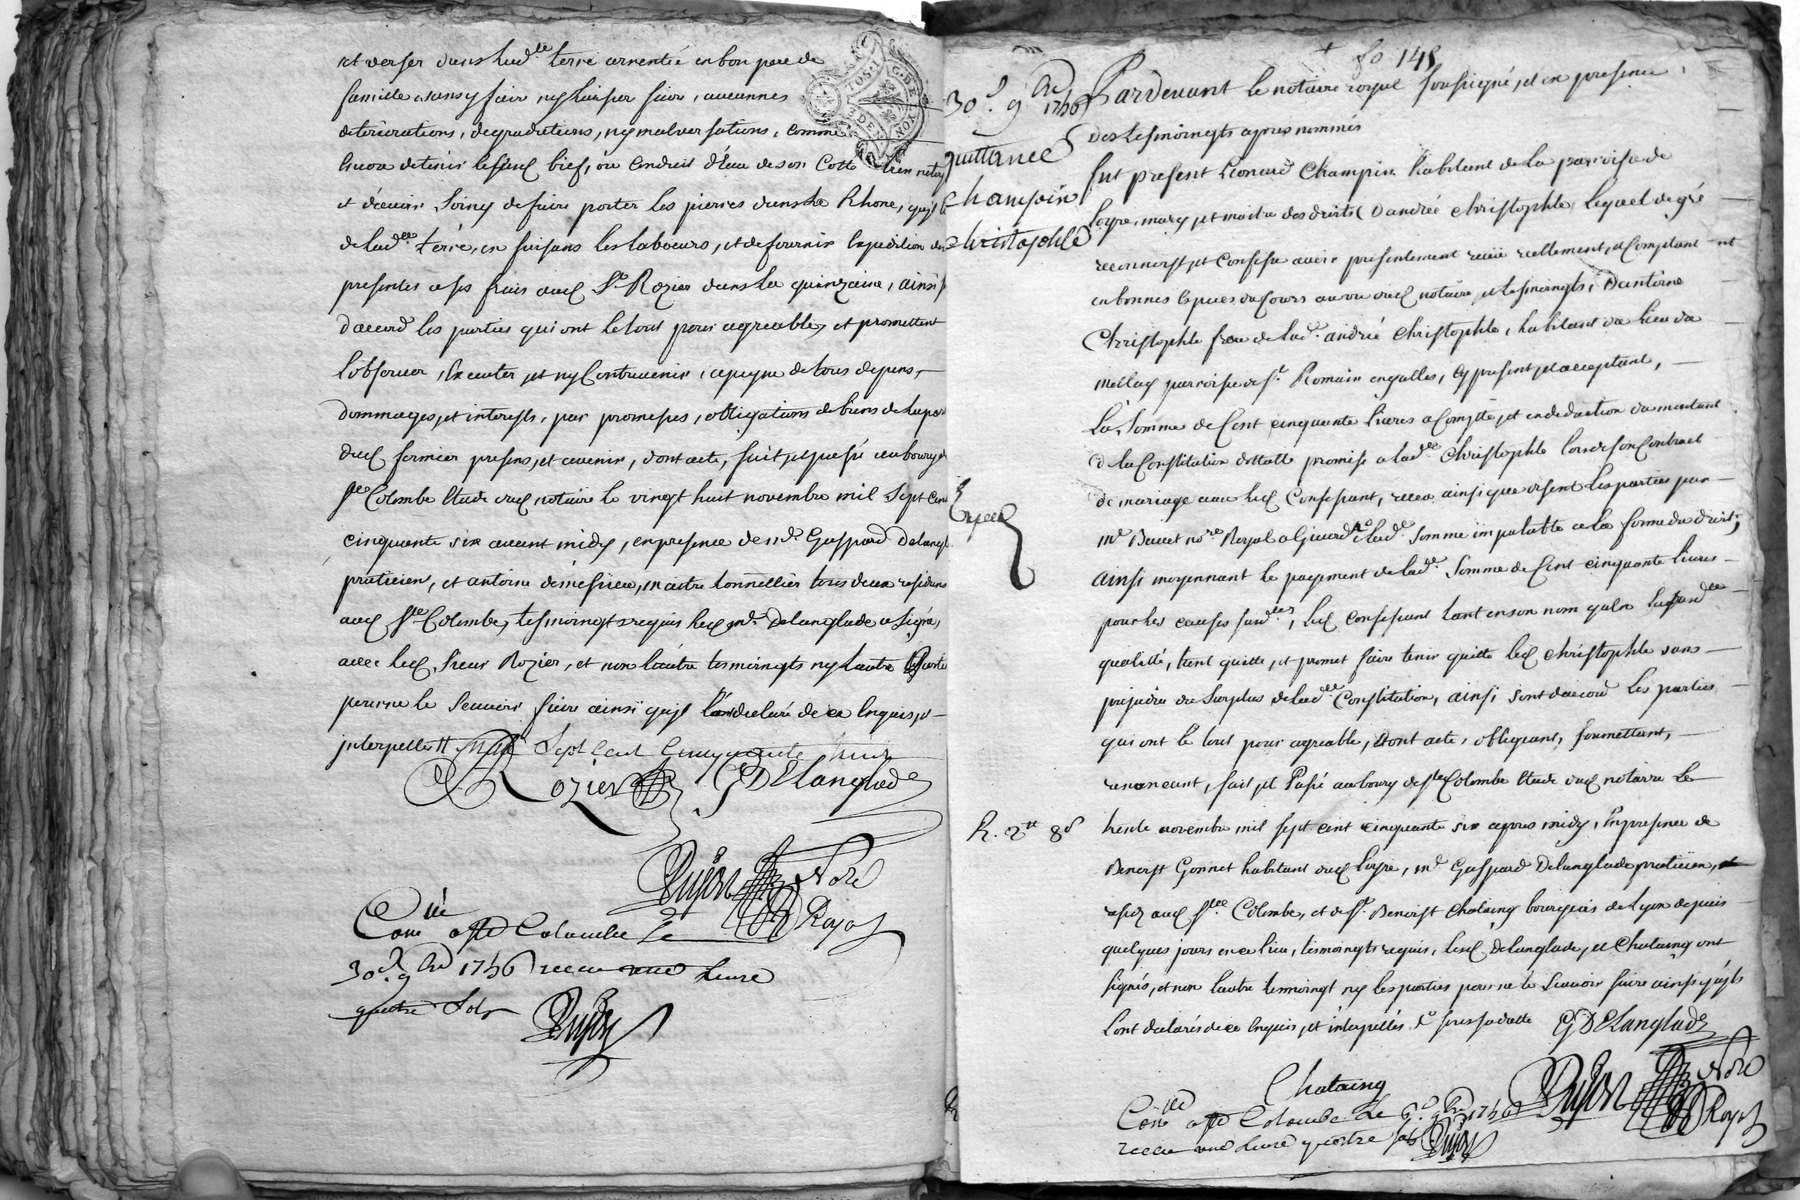 et verser dans lad.lle terre arrentée en bon pere de
famille sans y faire ny laisser faire, aucunnes
deteriorations, degradations, ny malversations, comme
encor detenir led bief, ou conduit d'eau de son Cotté bien
et d'avoir Soing de faire porter les pierres dans le Rhone, quy
de lad.e terre, en faisans les labours, et de fournir Expedition des
presentes a ses frais aud Sr Rozier dans la quinzaine, ainsi
d'accord les parties qui ont le tout pour agreable, et promettent
l'observer, Executer, et ny Contrevenir, a peyne de tous depens,
dommages, et interests, par promesses, obligations de biens
dud fermier presens, et avenir, dont acte, fait et passé au bourg de
Ste Colombe Etude dud notaire le vingt huit novembre mil Sept Cent
cinquante six avant midy, en presence de mr. Gaspard Delanglade
praticien, et antoine maitre tonnellier tous deux
aud Ste Colombe, tesmoingts requis led mr. Delanglade a Signé,
avec led. Sieur Rozier, et non l'autre tesmoingts ny l'autre partie
pour ne le Scavoir faire ainsi quil l'ont declaré de ce Enquis, et
interpellé Sept Cent
Rozier G Delanglade
Dujon Nore
Royal
Con.lé a Ste Colombe le
30.e 9bre 1756 receu une Livre
quatre Sols
Dujon
fo 148
30.e 9bre 1756
quittance
Champin
Christophle
Expedié
R. 2tt 8s
Pardevant le notaire royal Soussigné, et en presence
des tesmoingts apres nommés
fut present Leonard Champin habitant de la parroisse de
Loyre, mary et maitre des droits D'andrée Christophle, lequel de gré
reconnoist, et Confesse avoir presentement receu reellement, et Comptant
en bonnes Especes du Cours au vu dud notaire, et tesmoingts, D'antoine
Christophle frere de lad. andrée Christophle, habitant du lieu de
parroisse de St. Romain en galles, cy present, et acceptant,
La Somme de Cent cinquante Livres a Compte, et en deduction du montant
de la Constitution dottalle promise a lad.lle Christophle lors de son Contract
de mariage avec led Confessant, receu ainsi que disent les parties par
me no.re Royal a Givord Somme imputable a la forme du droit,
ainsi moyennant le payement de lad. Somme de Cent cinquante livres
pour les causes susd.tes, led confessant tant en son nom qu'en lasusd.te
qualitté, tient quitte, et promet faire tenir quitte led Christophle sans
prejudice du Surplus de lad.lle Constitution, ainsi sont daccord les parties
qui ont le tout pour agreable, dont acte, obligeant, soumettant,
renonceant, fait et Passé au bourg de Ste Colombe Etude dud notaire le
trente novembre mil sept cent cinquante six apres midy, En presence de
Benoist Gonnet habitant dud Loyre, mr. Gaspard Delanglade praticien,
resid aud Ste Colombe, et de Sr. Benoist Chataing bourgeois de Lyon depuis
quelques jours en ce lieu, tesmoingts requis, lesd Delanglade, et Chataing ont
signés, et non l'autre tesmoingt ny les parties pour ne le Scavoir faire ainsi qu'ils
l'ont declarés de ce Enquis, et interpellés G Delanglade
Chataing
Dujon Nore
Royal
Con.lé a Ste Colombe le 9bre 1756
receu une Livre quatre sols Dujon